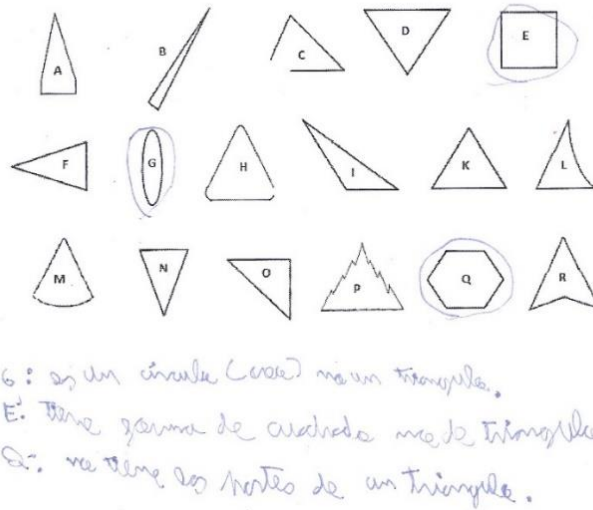 A B C D E
F G H I K L
M N O P Q R
G: es un circulo (creo) no un triangulo.
E: tiene forma de cuadrado no de triangulo
Q: no tiene las partes de un triangulo.